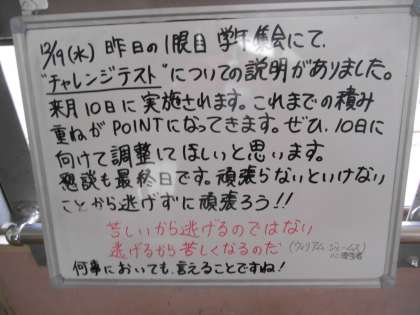 12/9(水) 昨日の1限目 学年集会にて、
"チャレンジテスト"についての説明がありました。
来月10日に実施されます。これまでの積み
重ねがPOINTになってきます。ぜひ、10日に
向けて調整してほしいと思います。
懇談も最終日です。頑張らないといけない
ことから逃げずに頑張ろう!!
苦しいから逃げるのではない
逃げるから苦しくなるのだ (ウィリアム・ジェームズ)
何事においても、言えることですね!